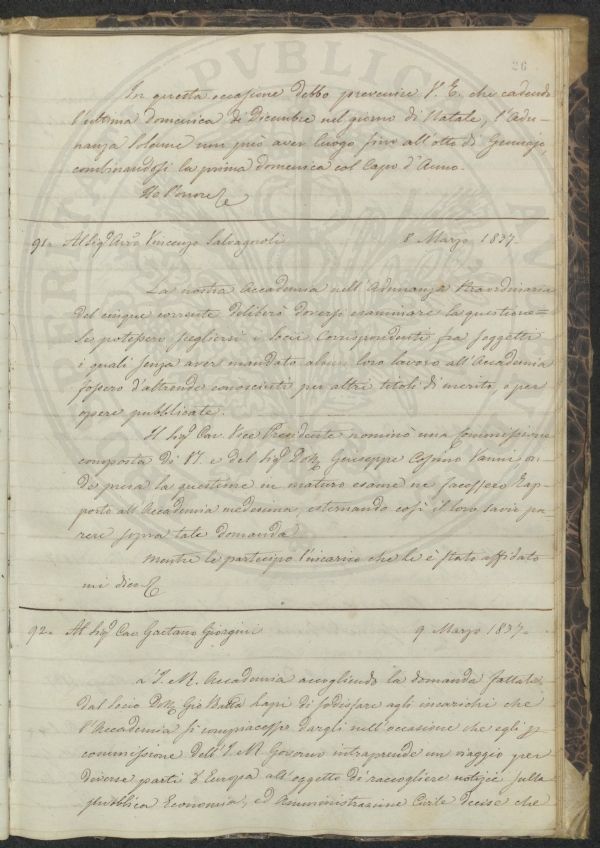 26
In questa occasione debbo prevenire V. E. che cadendo
l'ultima domenica di Dicembre nel giorno di Natale, l'Adu-
nanza Solenne non può aver luogo fino all'otto di Gennajo,
combinandosi la prima domenica col Capo d'Anno.
Ho l'onore
91. Al Sigr Avv. Vincenzo Salvagnoli 8 Marzo 1837.
La nostra Accademia nell'Adunanza straordinaria
del cinque corrente deliberò doversi esaminare la questione =
Se potessero scegliersi i Socii Corrispondenti fra soggetti
i quali senza aver mandato alcun loro lavoro all'Accademia
fossero d'altronde conosciuti per altri titoli di merito, o per
opere pubblicate.
Il Sigr Cav. Vice Presidente nominò una Commissione
composta di VS. e del Sigr Dottr Giuseppe Cosimo Vanni on-
de presa la questione in maturo esame ne facessero Rap-
porto all'Accademia medesima, esternando così il loro savio pa-
rere sopra tale domanda.
Mentre le partecipo l'incarico che le è stato affidato
mi dico
92. Al Sigr Cav. Gaetano Giorgini 9 Marzo 1837.
L'I. R. Accademia accogliendo la domanda fattale
dal Socio Dottr Gio Batta Lapi di sodisfare agli incarichi che
l'Accademia si compiacesse dargli nell'occasione che egli p
commissione dell'I. R. Governo intraprende un viaggio per
diverse parti d'Europa all'oggetto di raccogliere notizie sulla
pubblica Economia, ed Amministrazione Civile decise che